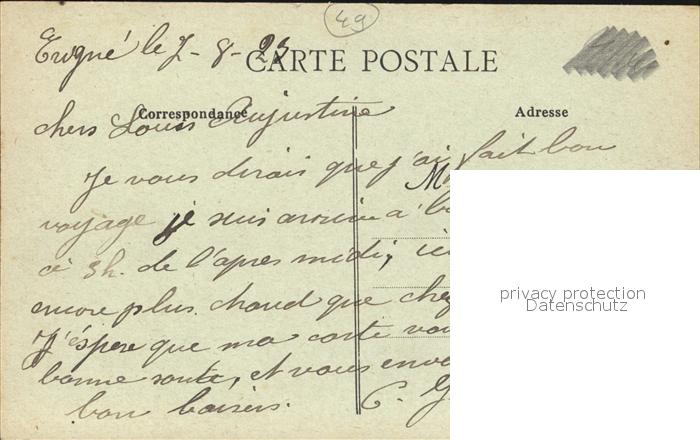 49
Erigné le 7-8-23
CARTE POSTALE
Correspondance
Adresse
chers Louis Augustine
Je vous dirais que j'ai fait bon
M
voyage je suis arrivée a
a 3h. de l'apres midi, ici
encore plus chaud que chez
J'éspere que ma carte vous
bonne sante, et vous envo
bon baisers.
privacy protection
Datenschutz